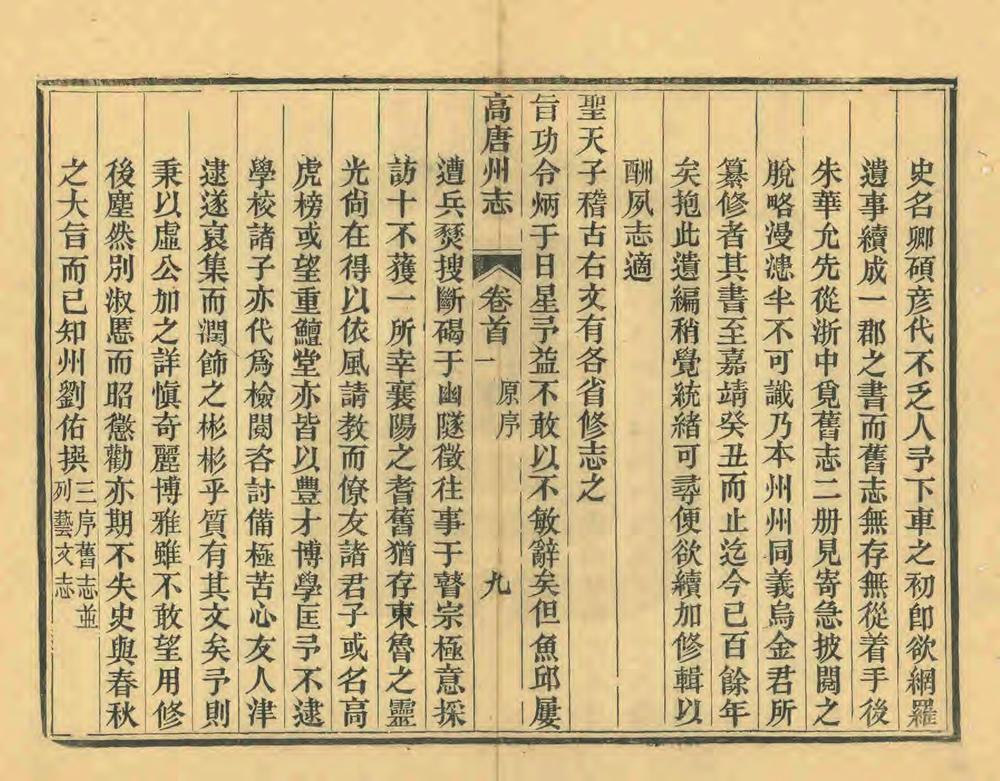 史名卿碩彦代不乏人予下車之初卽欲網羅
遺事續成一郡之書而舊志無存無從着手後
朱華允先從浙中覓舊志二册見寄急披閱之
脫略漫漶半不可識乃本州州同義烏金君所
纂修者其書至嘉靖癸丑而止迄今已百餘年
矣抱此遺編稍覺統緒可尋便欲續加修輯以
酬夙志適
聖天子稽古右文有各省修志之
旨功令炳于日星予益不敢以不敏辭矣但魚邱屢
高唐州志 卷首一 原序 九
遭兵燹搜斷碣于幽隧徵往事于瞽宗極意採
訪十不蒦一所幸襄陽之耆舊猶存東魯之靈
光尙在得以依風請教而僚友諸君子或名高
虎榜或望重鱣堂亦皆以豐才博學匡予不逮
學校諸子亦代爲檢閱咨討備極苦心友人津
逮遂裒集而潤飾之彬彬乎質有其文矣予則
秉以虛公加之詳愼奇麗博雅雖不敢望用修
後塵然別淑慝而昭懲勸亦期不失史與春秋
之大旨而已知州劉佑撰 三序舊志並
列藝文志